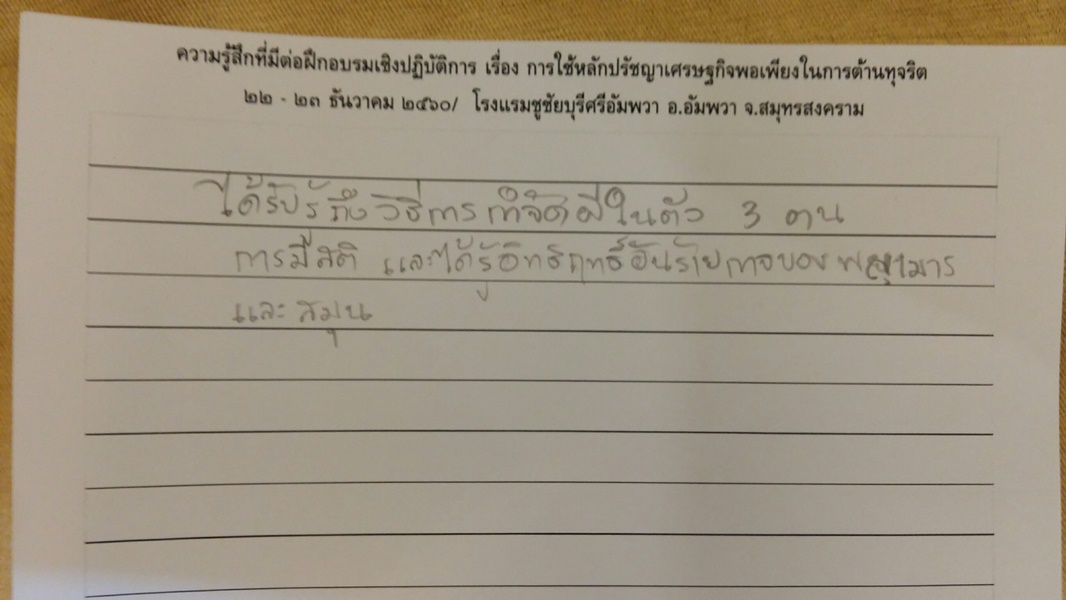 ความรู้สึกที่มีต่อฝึกอบรมเชิงปฏิบัติการ เรื่อง การใช้หลักปรัชญาเศรษฐกิจพอเพียงในการต้านทุจริต
๒๒ - ๒๓ ธันวาคม ๒๕๖๐/ โรงแรมชูชัยบุรีศรีอัมพวา อ.อัมพวา จ.สมุทรสงคราม
ได้รับรู้ถึงวิธีการกำจัดผีในตัว 3 ตน
การมีสติ และได้รู้อิทธิฤทธิ์อันร้ายกาจของพญามาร
และสมุน